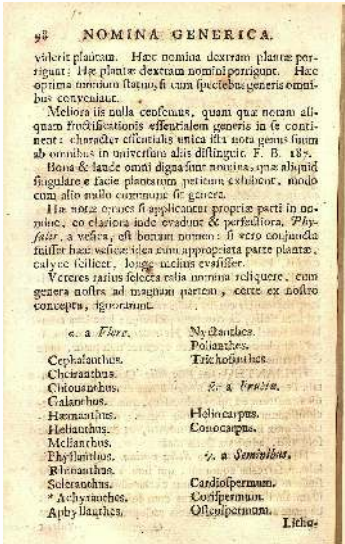 98 NOMINA GENERICA.
viderit plantam. Hæc nomina dextram plantæ por-
rigunt: Hæ plantæ dextram nomini porrigunt. Hæc
optima omnium statuo, si cum speciebus generis omni-
bus conveniant.
Meliora iis nulla censemus, quam quæ notam ali-
quam fructificationis essentialem generis in se conti-
nent: character essentialis unica ista nota genus suum
ab omnibus in universum aliis distinguit. F. B. 187.
Bona & laude omni digna sunt nomina, quæ aliquid
singulare e facie plantarum petitum exhibent, modo
cum alio nullo commune sit genere.
Hæ notæ omnes si applicantur propriæ parti in no-
mine, eo clariora inde evadunt & perfectiora. Phy-
salis, a vesica, est bonum nomen: si vero conjuncta
fuisset hæc vesicæ idea cum appropriata parte plantæ,
calyce scilicet, longe melius evasisset.
Veteres rarius selecta talia nomina reliquere, cum
genera nostra ad magnam partem, certe ex nostro
conceptu, ignorarunt.
α. a Flore.
Cephalanthus.
Cheiranthus.
Chionanthus.
Galanthus.
Hæmanthus.
Helianthus.
Melianthus.
Phyllanthus.
Rhinanthus.
Scleranthus.
* Achyranthes.
Aphyllanthes.
Nyctanthes.
Polianthes.
Trichosanthes.
β. a Fructu.
Heliocarpus.
Conocarpus.
γ. a Seminibus.
Cardiospermum.
Corispermum.
Osteospermum.
Litho-